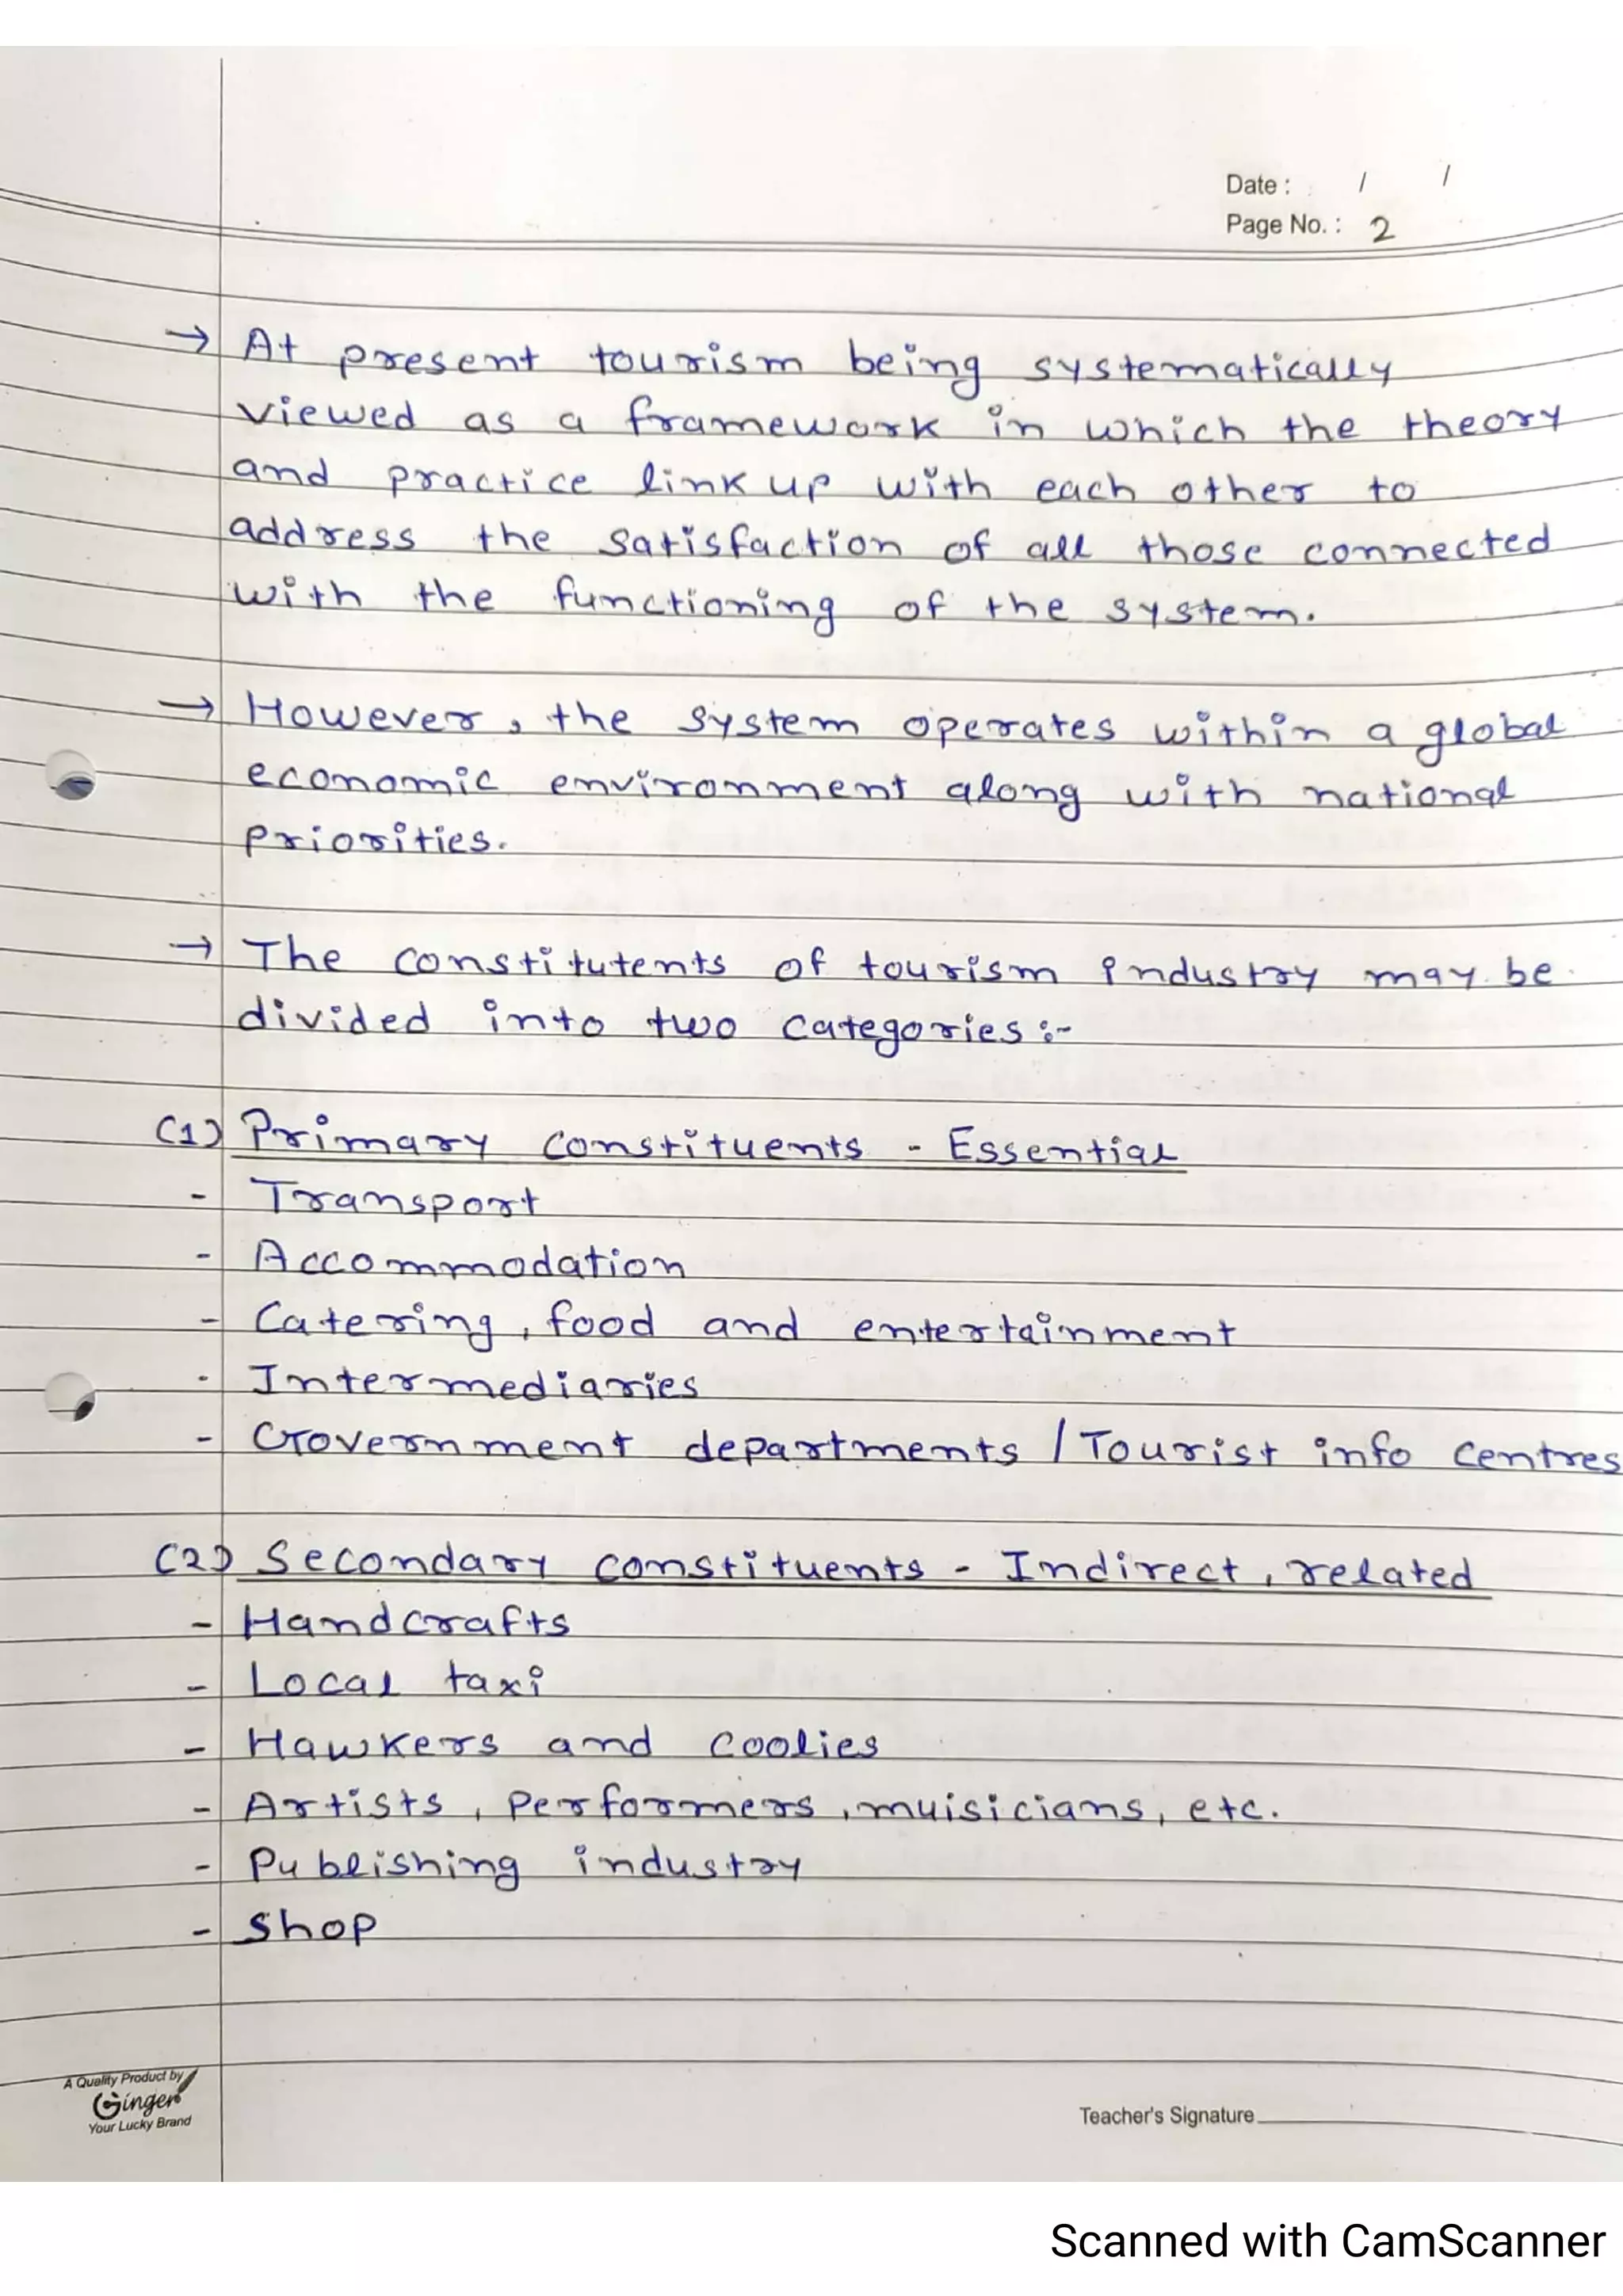 Date : / /
Page No. : 2
→ At present tourism being systematically
viewed as a framework in which the theory
and practice link up with each other to
address the satisfaction of all those connected
with the functioning of the system.
→ However, the system operates within a global
economic environment along with national
priorities.
→ The constitutents of tourism industry may be
divided into two categories :-
(1) Primary constituents - Essential
- Transport
- Accommodation
- Catering, food and entertainment
- Intermediaries
- Government departments / Tourist info centres
(2) Secondary constituents - Indirect, related
- Handcrafts
- Local taxi
- Hawkers and coolies
- Artists, performers, muisicians, etc.
- Publishing industry
- Shop
A Quality Product by
Ginger
Your Lucky Brand
Teacher's Signature
Scanned with CamScanner